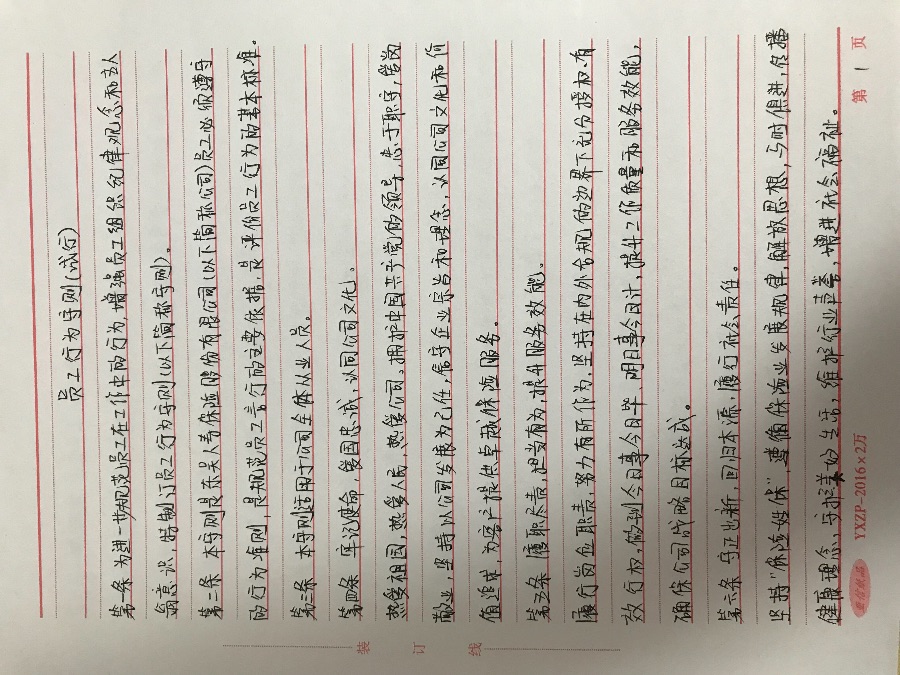 员工行为守则(试行)
第一条 为进一步规范员工在工作中的行为,增强员工组织纪律观念和敬
意识,特制订员工行为守则(以下简称守则)。
第二条 本守则是东吴人寿保险股份有限公司(以下简称公司)员工必须遵守
的行为准则,是规范员工言行的主要依据,是评价员工行为的基本标准。
第三条 本守则适用于公司全体从业人员。
第四条 牢记使命,爱国忠诚,认同公司文化。
热爱祖国,热爱人民,热爱公司。拥护中国共产党的领导,忠于职守,爱岗
敬业,坚持以公司发展为己任,信守企业宗旨和理念,认同公司文化和价
值追求,为客户提供卓越保险服务。
第五条 履职尽责,担当有为,提升服务效能。
履行岗位职责,努力有所作为。坚持在内外合规的边界下充分授权、有
效行权,做到今日事今日毕,明日事今日计,提升工作质量和服务效能,
确保公司战略目标达成。
第六条 守正出新,回归本源,履行社会责任。
坚持“保险姓保”,遵循保险业发展规律,解放思想,与时俱进,传播
健康理念,守护美好生活,维护行业声誉,增进社会福祉。
装 订 线
YXZP-2016×2万
第 1 页